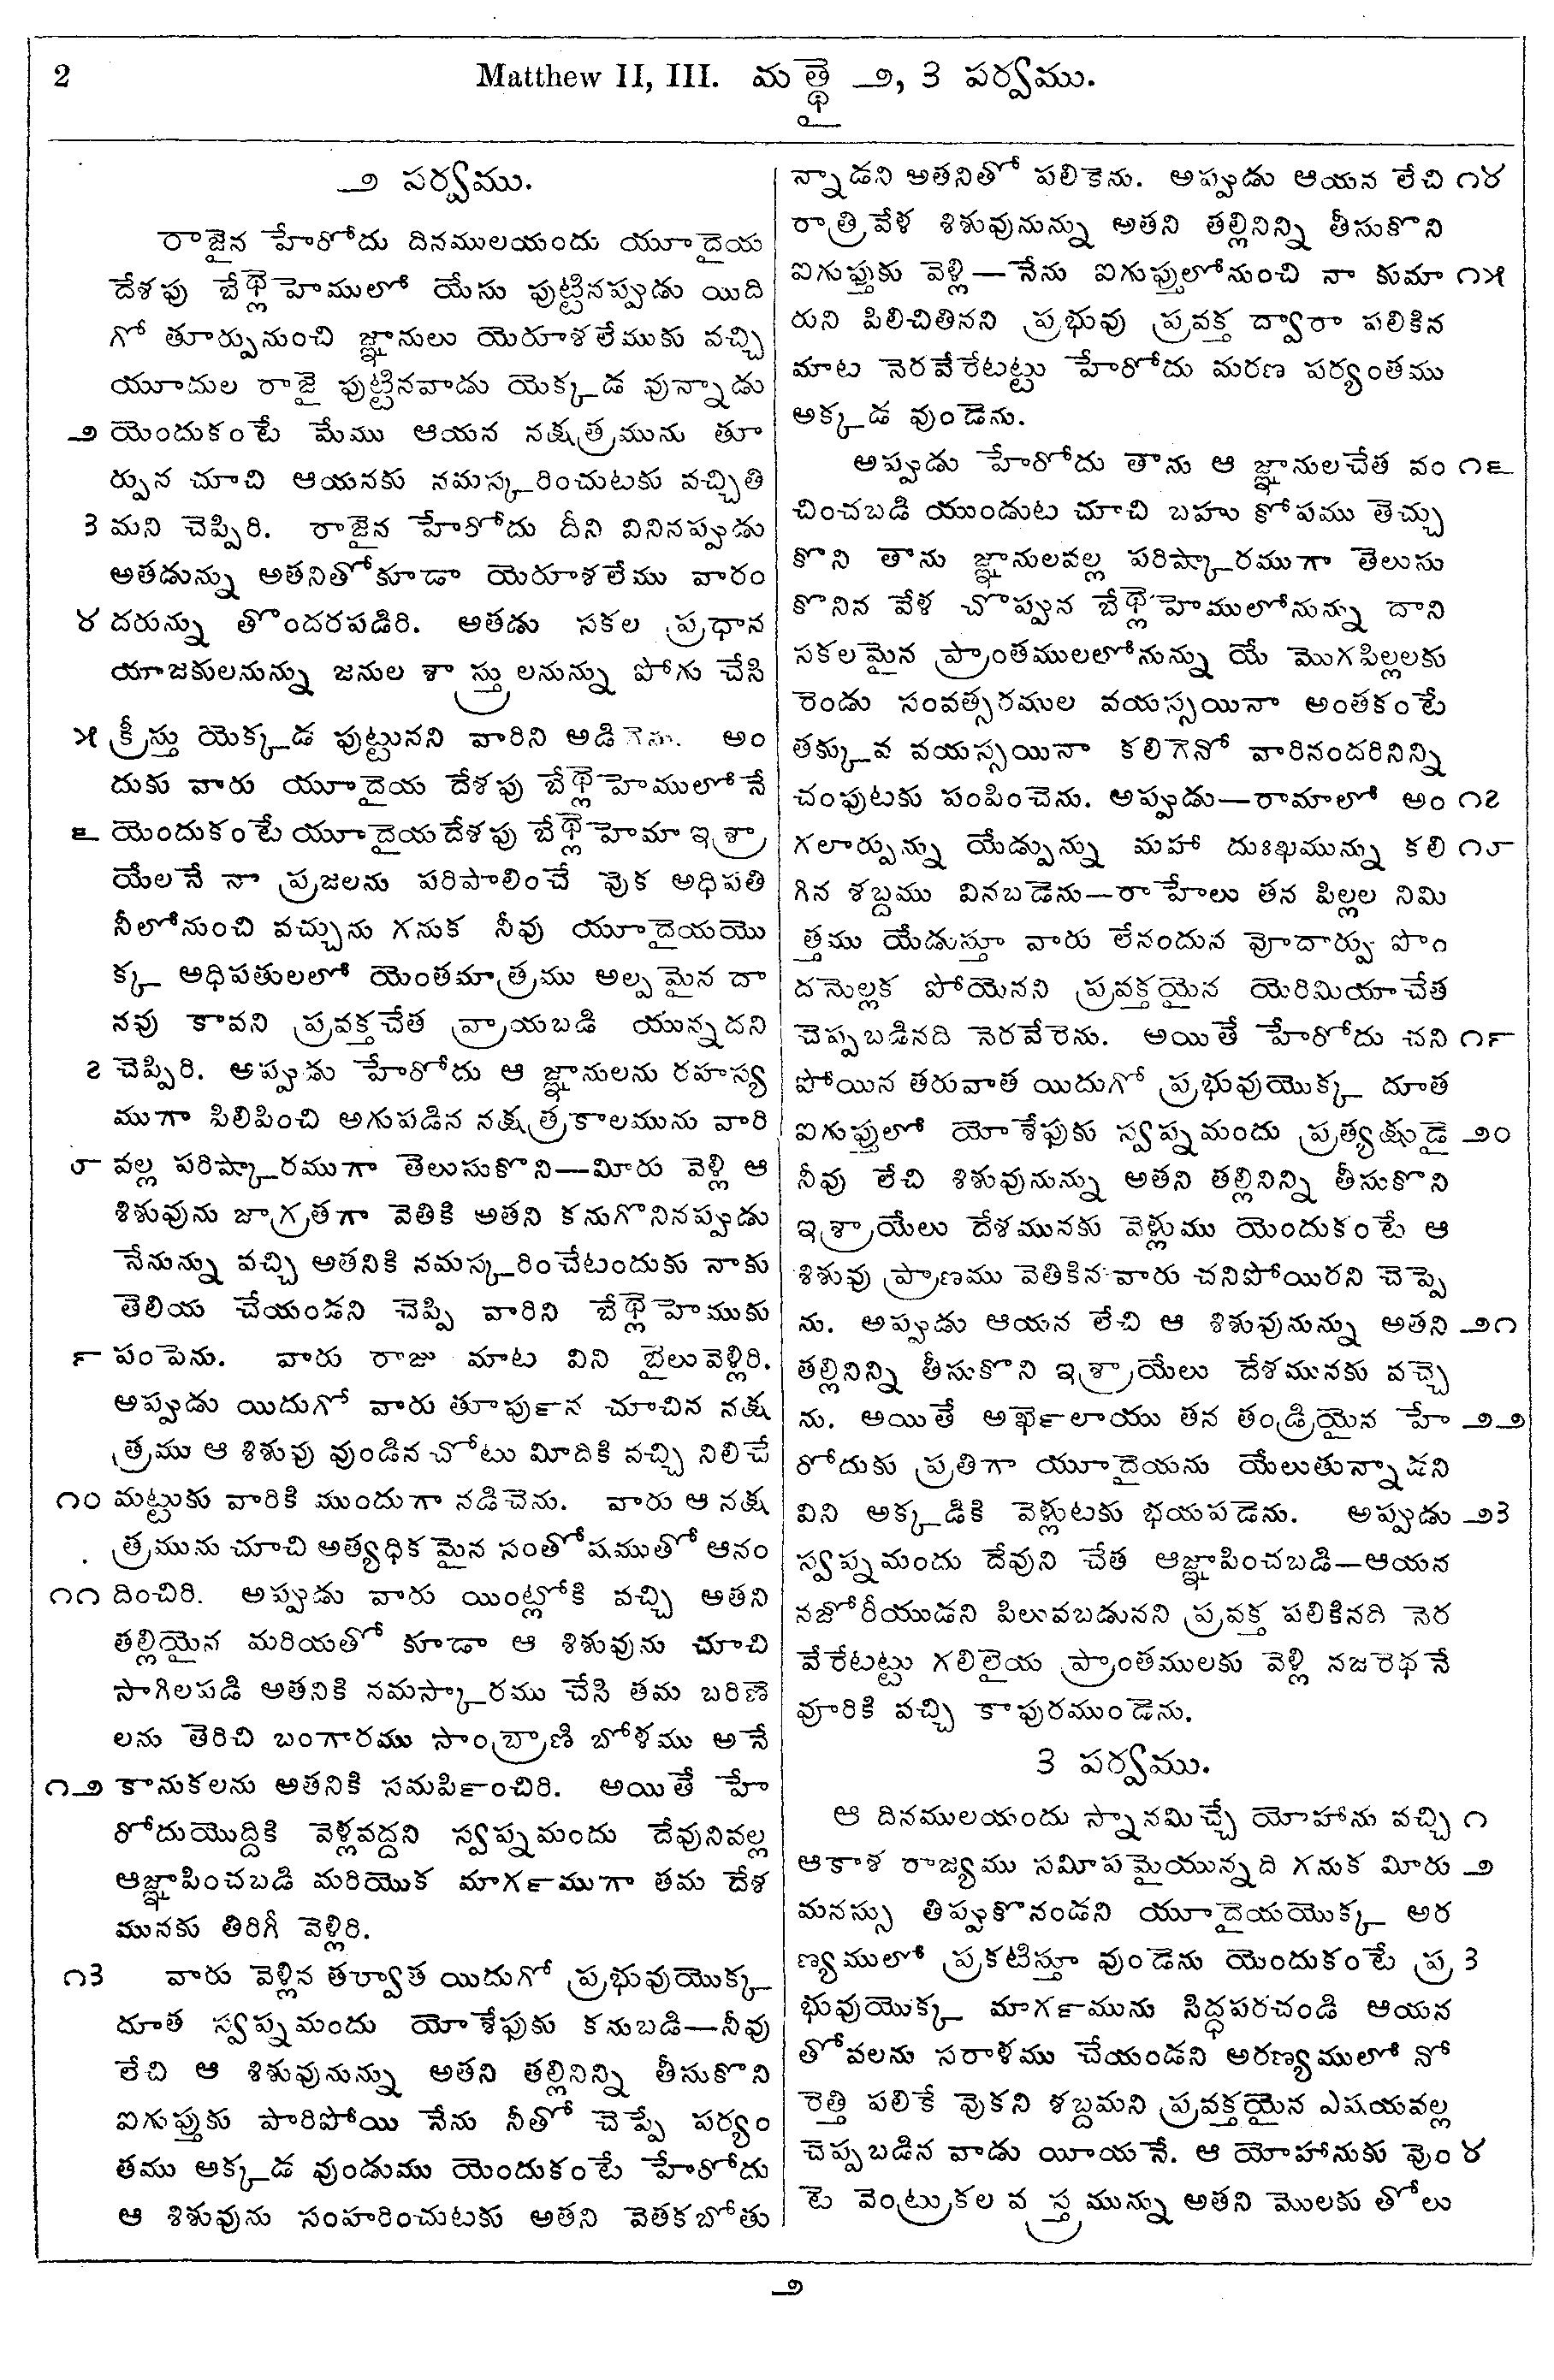 2
Matthew II, III. మత్థై ౨, ౩ పర్వము.
౨ పర్వము.
రాజైన హేరోదు దినములయందు యూదైయ
దేళపు బేథ్లెహెములో యేసు పుట్టినప్పుడు యిది
గో తూర్పునుంచి జ్ఞానులు యెరూళలేముకు వచ్చి
యూదుల రాజై పుట్టినవాడు యెక్కడ వున్నాడు
౨ యెందుకంటే మేము ఆయన నక్షత్రమును తూ
ర్పున చూచి ఆయనకు నమస్కరించుటకు వచ్చితి
౩ మని చెప్పిరి. రాజైన హేరోదు దీని వినినప్పుడు
అతడున్ను అతనితోకూడా యెరూళలేము వారం
౪ దరున్ను తొందరపడిరి. అతడు సకల ప్రధాన
యాజకులనున్ను జనుల శాస్త్రులనున్ను పోగు చేసి
౫ క్రీస్తు యెక్కడ పుట్టునని వారిని అడిగెను. అం
దుకు వారు యూదైయ దేళపు బేథ్లెహెములోనే
౬ యెందుకంటే యూదైయదేళపు బేథ్లెహెమా ఇశ్రా
యేలనే నా ప్రజలను పరిపాలించే వొక అధిపతి
నీలోనుంచి వచ్చును గనుక నీవు యూదైయయొ
క్క అధిపతులలో యెంతమాత్రము అల్పమైన దా
నవు కావని ప్రవక్తచేత వ్రాయబడి యున్నదని
౭ చెప్పిరి. అప్పుడు హేరోదు ఆ జ్ఞానులను రహస్య
ముగా పిలిపించి అగుపడిన నక్షత్రకాలమును వారి
౮ వల్ల పరిష్కారముగా తెలుసుకొని—మీరు వెళ్లి ఆ
శిశువును జాగ్రతగా వెతికి అతని కనుగొనినప్పుడు
నేనున్ను వచ్చి అతనికి నమస్కరించేటందుకు నాకు
తెలియ చేయండని చెప్పి వారిని బేథ్లెహెముకు
౯ పంపెను. వారు రాజు మాట విని బైలువెళ్లిరి.
అప్పుడు యిదుగో వారు తూపు౯న చూచిన నక్ష
త్రము ఆ శిశువు వుండిన చోటు మీదికి వచ్చి నిలిచే
౧౦ మట్టుకు వారికి ముందుగా నడిచెను. వారు ఆ నక్ష
త్రమును చూచి అత్యధికమైన సంతోషముతో ఆనం
౧౧ దించిరి. అప్పుడు వారు యింట్లోకి వచ్చి అతని
తల్లియైన మరియతో కూడా ఆ శిశువును చూచి
సాగిలపడి అతనికి నమస్కారము చేసి తమ బరిణె
లను తెరిచి బంగారము సాంబ్రాణి బోళము అనే
౧౨ కానుకలను అతనికి సమపి౯ంచిరి. అయితే హే
రోదుయొద్దికి వెళ్లవద్దని స్వప్నమందు దేవునివల్ల
ఆజ్ఞాపించబడి మరియొక మాగ౯ముగా తమ దేళ
మునకు తిరిగీ వెళ్లిరి.
౧౩ వారు వెళ్లిన తర్వాత యిదుగో ప్రభువుయొక్క
దూత స్వప్నమందు యోశేఫుకు కనుబడి—నీవు
లేచి ఆ శిశువునున్ను అతని తల్లినిన్ని తీసుకొని
ఐగుప్తుకు పారిపోయి నేను నీతో చెప్పే పర్యం
తము అక్కడ వుండుము యెందుకంటే హేరోదు
ఆ శిశువును సంహరించుటకు అతని వెతకబోతు
న్నాడని అతనితో పలికెను. అప్పుడు ఆయన లేచి ౧౪
రాత్రివేళ శిశువునున్ను అతని తల్లినిన్ని తీసుకొని
ఐగుప్తుకు వెళ్లి—నేను ఐగుప్తులోనుంచి నా కుమా ౧౫
రుని పిలిచితినని ప్రభువు ప్రవక్త ద్వారా పలికిన
మాట నెరవేరేటట్టు హేరోదు మరణ పర్యంతము
అక్కడ వుండెను.
అప్పుడు హేరోదు తాను ఆ జ్ఞానులచేత వం ౧౬
చించబడి యుండుట చూచి బహు కోపము తెచ్చు
కొని తాను జ్ఞానులవల్ల పరిష్కారముగా తెలుసు
కొనిన వేళ చొప్పున బేథ్లెహెములోనున్ను దాని
సకలమైన ప్రాంతములలోనున్ను యే మొగపిల్లలకు
రెండు సంవత్సరముల వయస్సయినా అంతకంటే
తక్కువ వయస్సయినా కలిగెనో వారినందరినిన్ని
చంపుటకు పంపించెను. అప్పుడు—రామాలో అం ౧౭
గలార్పున్ను యేడ్పున్ను మహా దుఃఖమున్ను కలి ౧౮
గిన శబ్దము వినబడెను—రాహేలు తన పిల్లల నిమి
త్తము యేడుస్తూ వారు లేనందున వోదార్పు పొం
దనొల్లక పోయెనని ప్రవక్తయైన యెరిమియాచేత
చెప్పబడినది నెరవేరెను. అయితే హేరోదు చని ౧౯
పోయిన తరువాత యిదుగో ప్రభువుయొక్క దూత
ఐగుప్తులో యోశేఫుకు స్వప్నమందు ప్రత్యక్షుడై ౨౦
నీవు లేచి శిశువునున్ను అతని తల్లినిన్ని తీసుకొని
ఇశ్రాయేలు దేళమునకు వెళ్లుము యెందుకంటే ఆ
శిశువు ప్రాణము వెతికినవారు చనిపోయిరని చెప్పె
ను. అప్పుడు ఆయన లేచి ఆ శిశువునున్ను అతని ౨౧
తల్లినిన్ని తీసుకొని ఇశ్రాయేలు దేళమునకు వచ్చె
ను. అయితే అఖె౯లాయు తన తండ్రియైన హే ౨౨
రోదుకు ప్రతిగా యూదైయను యేలుతున్నాడని
విని అక్కడికి వెళ్లుటకు భయపడెను. అప్పుడు ౨౩
స్వప్నమందు దేవుని చేత ఆజ్ఞాపించబడి—ఆయన
నజోరీయుడని పిలువబడునని ప్రవక్త పలికినది నెర
వేరేటట్టు గలిలైయ ప్రాంతములకు వెళ్లి నజరెథనే
వూరికి వచ్చి కాపురముండెను.
౩ పర్వము.
ఆ దినములయందు స్నానమిచ్చే యోహాను వచ్చి ౧
ఆకాళ రాజ్యము సమీపమైయున్నది గనుక మీరు ౨
మనస్సు తిప్పుకొనండని యూదైయయొక్క అర
ణ్యములో ప్రకటిస్తూ వుండెను యెందుకంటే ప్ర ౩
భువుయొక్క మాగ౯మును సిద్ధపరచండి ఆయన
తోవలను సరాళము చేయండని అరణ్యములో నో
రెత్తి పలికే వొకని శబ్దమని ప్రవక్తయైన ఎషయవల్ల
చెప్పబడిన వాడు యీయనే. ఆ యోహానుకు వొం ౪
టె వెంట్రుకల వస్త్రమున్ను అతని మొలకు తోలు
౨